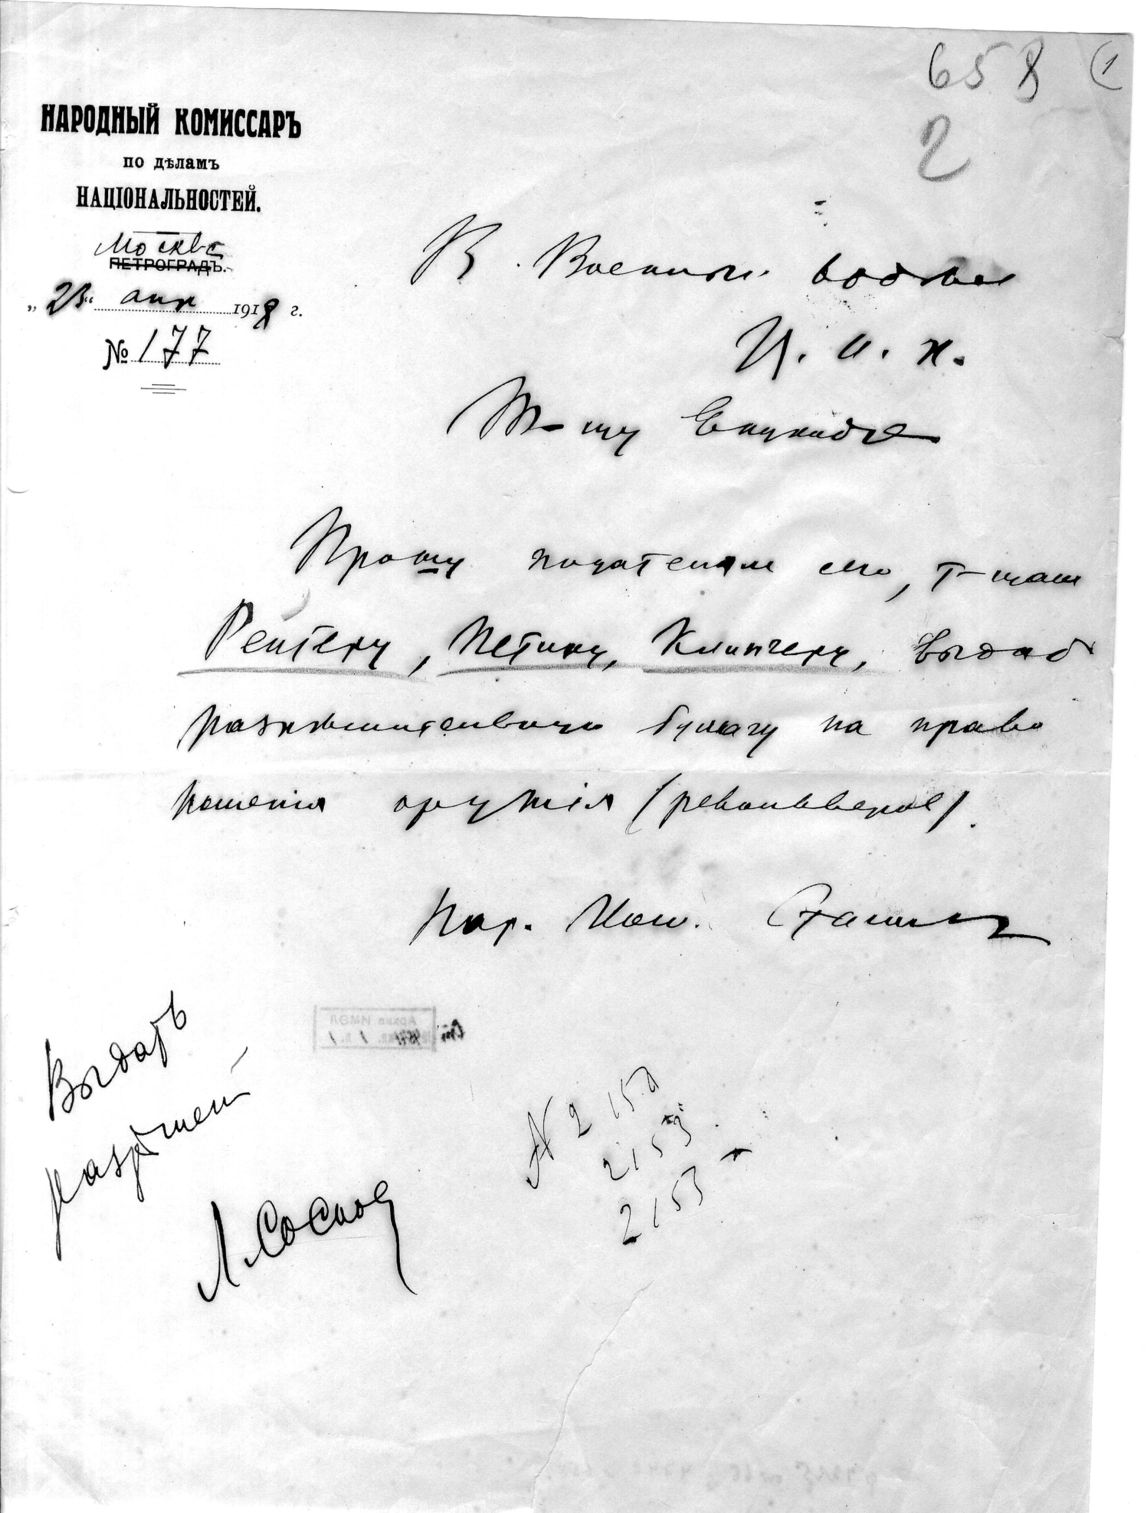 658 (1
2
НАРОДНЫЙ КОМИССАРЪ
по дѣламъ
НАЦІОНАЛЬНОСТЕЙ.
Москва
ПЕТРОГРАДЪ.
„23“ апр 1918 г.
№ 177
В Военный
Ц. И. К.
Т-щу Енукидзе
Прошу подателям сего, т-щам
Рентеру, Петину, Клингеру, выдать
разрешительную бумагу на право
ношенія оружія (револьверов).
Нар. Ком. Сталин
Архив ИМЭЛ
Выдать
разрѣшен
Л. Соснов
N 2152
2153
2153